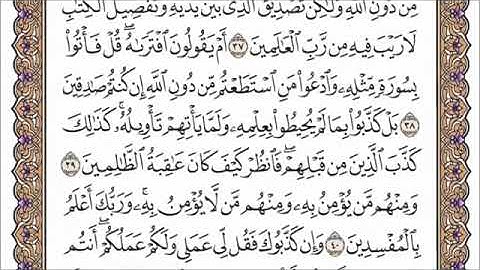 مِن دُونِ ٱللَّهِ وَلَٰكِن تَصْدِيقَ ٱلَّذِى بَيْنَ يَدَيْهِ وَتَفْصِيلَ ٱلْكِتَٰبِ
لَا رَيْبَ فِيهِ مِن رَّبِّ ٱلْعَٰلَمِينَ ٣٧ أَمْ يَقُولُونَ ٱفْتَرَىٰهُ ۖ قُلْ فَأْتُوا۟
بِسُورَةٍ مِّثْلِهِۦ وَٱدْعُوا۟ مَنِ ٱسْتَطَعْتُم مِّن دُونِ ٱللَّهِ إِن كُنتُمْ صَٰدِقِينَ
٣٨ بَلْ كَذَّبُوا۟ بِمَا لَمْ يُحِيطُوا۟ بِعِلْمِهِۦ وَلَمَّا يَأْتِهِمْ تَأْوِيلُهُۥ ۚ كَذَٰلِكَ
كَذَّبَ ٱلَّذِينَ مِن قَبْلِهِمْ ۖ فَٱنظُرْ كَيْفَ كَانَ عَٰقِبَةُ ٱلظَّٰلِمِينَ ٣٩
وَمِنْهُم مَّن يُؤْمِنُ بِهِۦ وَمِنْهُم مَّن لَّا يُؤْمِنُ بِهِۦ ۚ وَرَبُّكَ أَعْلَمُ
بِٱلْمُفْسِدِينَ ٤٠ وَإِن كَذَّبُوكَ فَقُل لِّى عَمَلِى وَلَكُمْ عَمَلُكُمْ ۖ أَنتُم